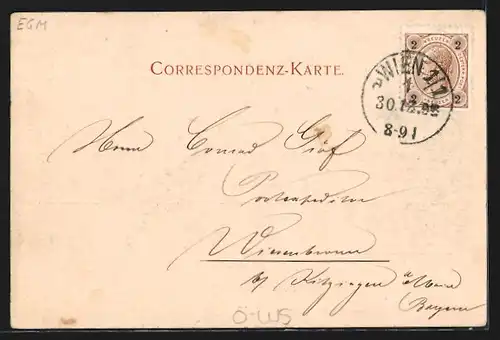 EGM
2 KREUZER 2
2 2
CORRESPONDENZ-KARTE.
WIEN 1/1
30.12.98
8-9 V
Herrn Conrad Gräf
Postexpeditor
Wiesenbronn
b/ Kitzingen a/Main
Bayern
Ö-WS